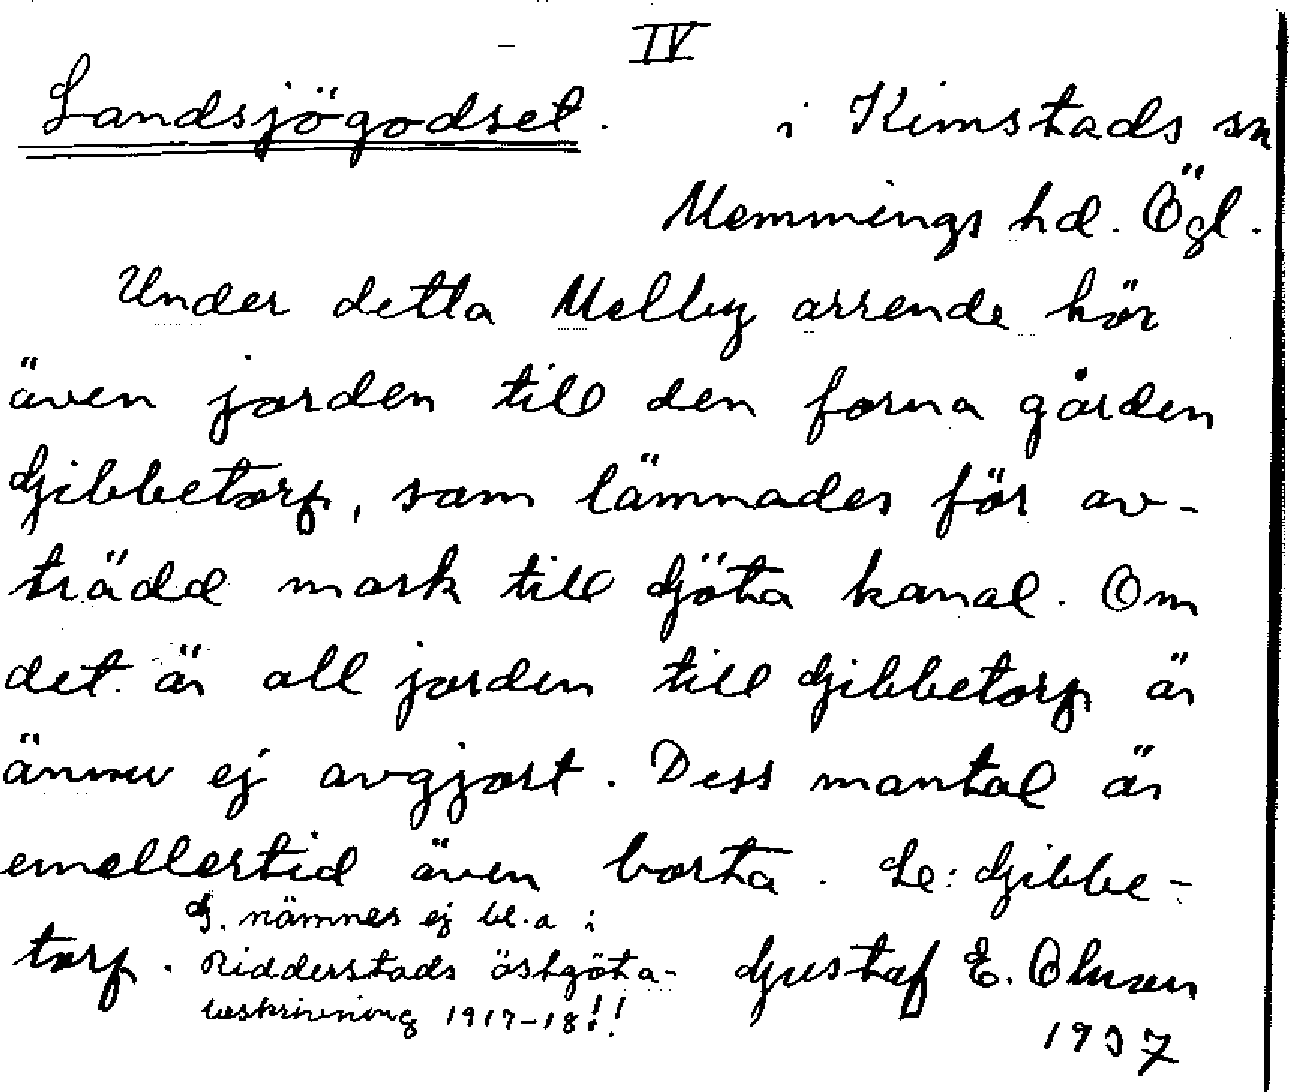 IV
Landsjögodset. i Kimstads sn
Memmings hd. Ögl.
Under detta Melby arrende hör
även jorden till den forna gården
Gibbetorp, som lämnades för av-
trädd mark till Göta kanal. Om
det är all jorden till Gibbetorp är
ännu ej avgjort. Dess mantal är
emellertid även borta. Se: Gibbe-
torp. G. nämnes ej bl.a i
Ridderstads östgöta-
beskrivning 1917-18!!
Gustaf E. Olsson
1937